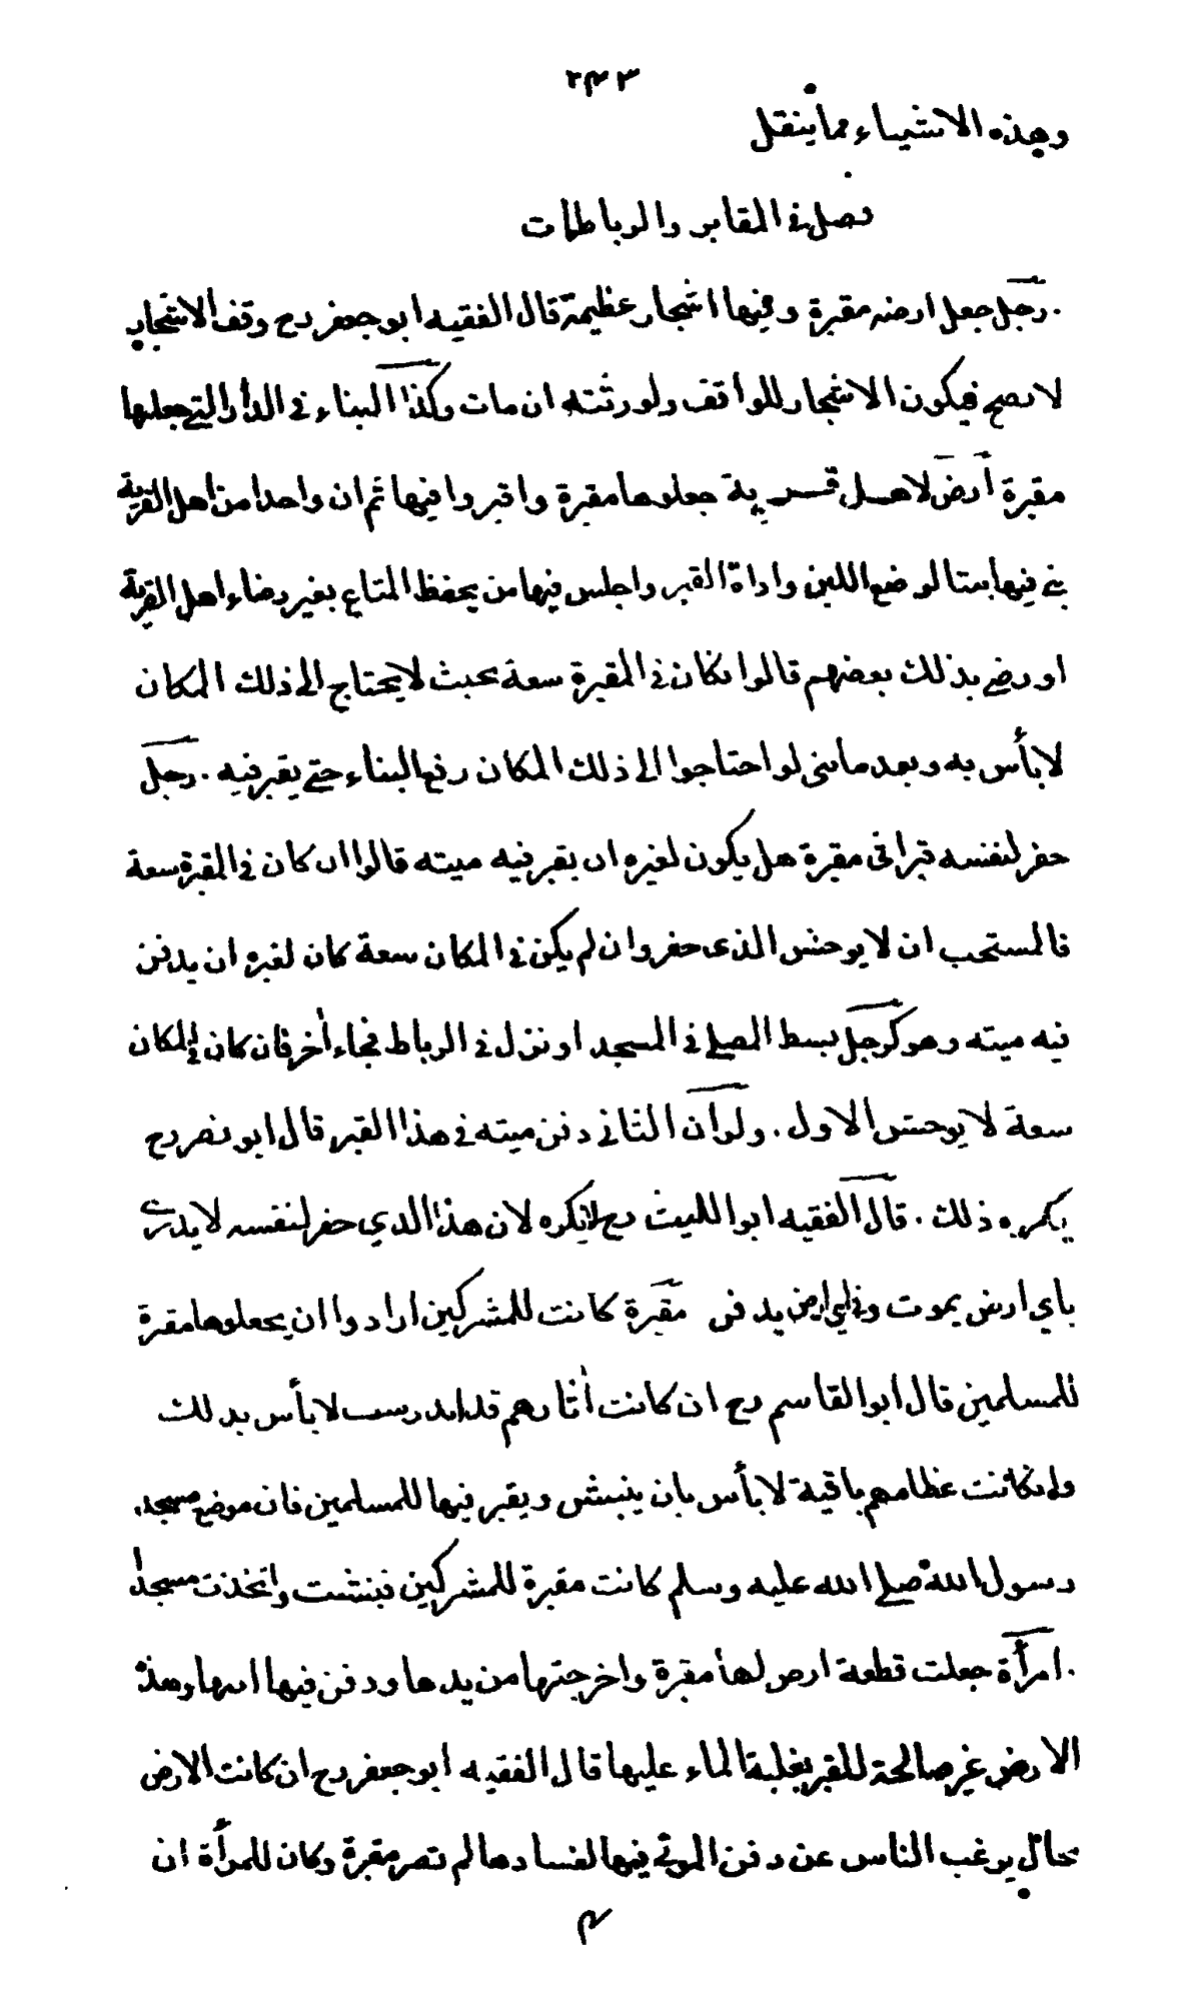 ٢٤٣
وهذه الاشياء مما ينقل
فصل في المقابر والرباطات
. رجل جعل ارضه مقبرة وفيها اشجار عظيمة قال الفقيه ابو جعفر رح وقف الاشجار
لا يصح فيكون الاشجار للواقف ولورثته ان مات وكذا البناء في الدار التي جعلها
مقبرة أرض لاهل قرية جعلوها مقبرة واقبروا فيها ثم ان واحدا من اهل القرية
بنى فيها بيتا لوضع اللبن واداة القبر واجلس فيها من يحفظ المتاع بغير رضاء اهل القرية
او رضي بذلك بعضهم قالوا انكان في المقبرة سعة بحيث لا يحتاج الى ذلك المكان
لا بأس به وبعد ما بنى لو احتاجوا الى ذلك المكان رفع البناء حتى يقبر فيه . رجل
حفر لنفسه قبرا في مقبرة هل يكون لغيره ان يقبر فيه ميته قالوا ان كان في المقبرة سعة
فالمستحب ان لا يوحش الذى حفر وان لم يكن في المكان سعة كان لغيره ان يدفن
فيه ميته وهو كرجل بسط المصلى في المسجد او نزل في الرباط فجاء أخر فان كان في المكان
سعة لا يوحش الاول . ولو ان الثاني دفن ميته في هذا القبر قال ابو نصر رح
يكره ذلك . قال الفقيه ابو الليث رح لا يكره لان هذا الذي حفر لنفسه لا يدرى
باي ارض يموت وفي اي ارض يدفن مقبرة كانت للمشركين ارادوا ان يجعلوها مقبرة
للمسلمين قال ابو القاسم رح ان كانت أثارهم قد اندرست لا بأس بذلك
وانكانت عظامهم باقية لا بأس بان ينبش ويقبر فيها للمسلمين فان موضع مسجد
رسول الله صلى الله عليه وسلم كانت مقبرة للمشركين فنبشت واتخذت مسجدا
. امرأة جعلت قطعة ارض لها مقبرة واخرجتها من يدها ودفن فيها ابنها وهذه
الارض غير صالحة للقبر لغلبة الماء عليها قال الفقيه ابو جعفر رح ان كانت الارض
بحال يرغب الناس عن دفن الموتى فيها لفسادها لم تصر مقبرة وكان للمرأة ان